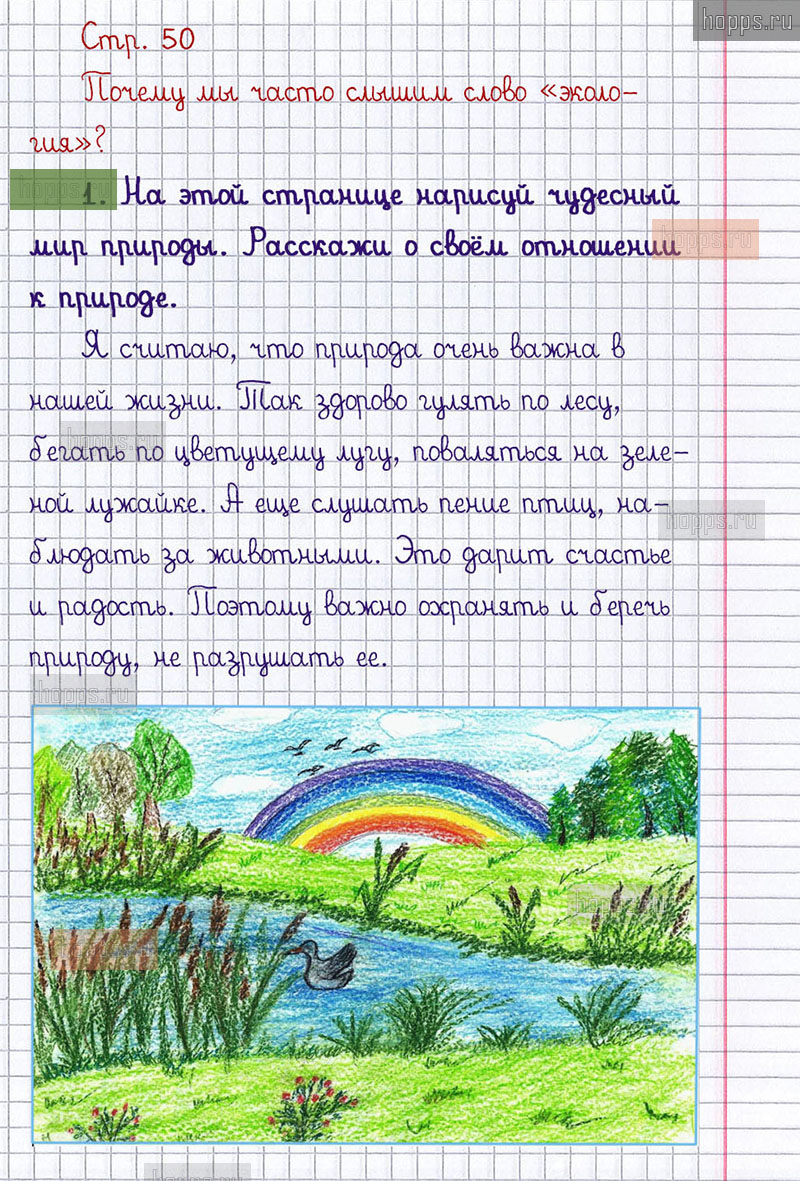 hopps.ru
Стр. 50
Почему мы часто слышим слово «эколо-
гия»?
hopps.ru
1. На этой странице нарисуй чудесный
hopps.ru
мир природы. Расскажи о своём отношении
к природе.
Я считаю, что природа очень важна в
нашей жизни. Так здорово гулять по лесу,
hopps.ru
бегать по цветущему лугу, поваляться на зеле-
ной лужайке. А еще слушать пение птиц, на-
hopps.ru
блюдать за животными. Это дарит счастье
и радость. Поэтому важно охранять и беречь
природу, не разрушать ее.
hopps.ru
hopps.ru
hopps.ru
hopps.ru